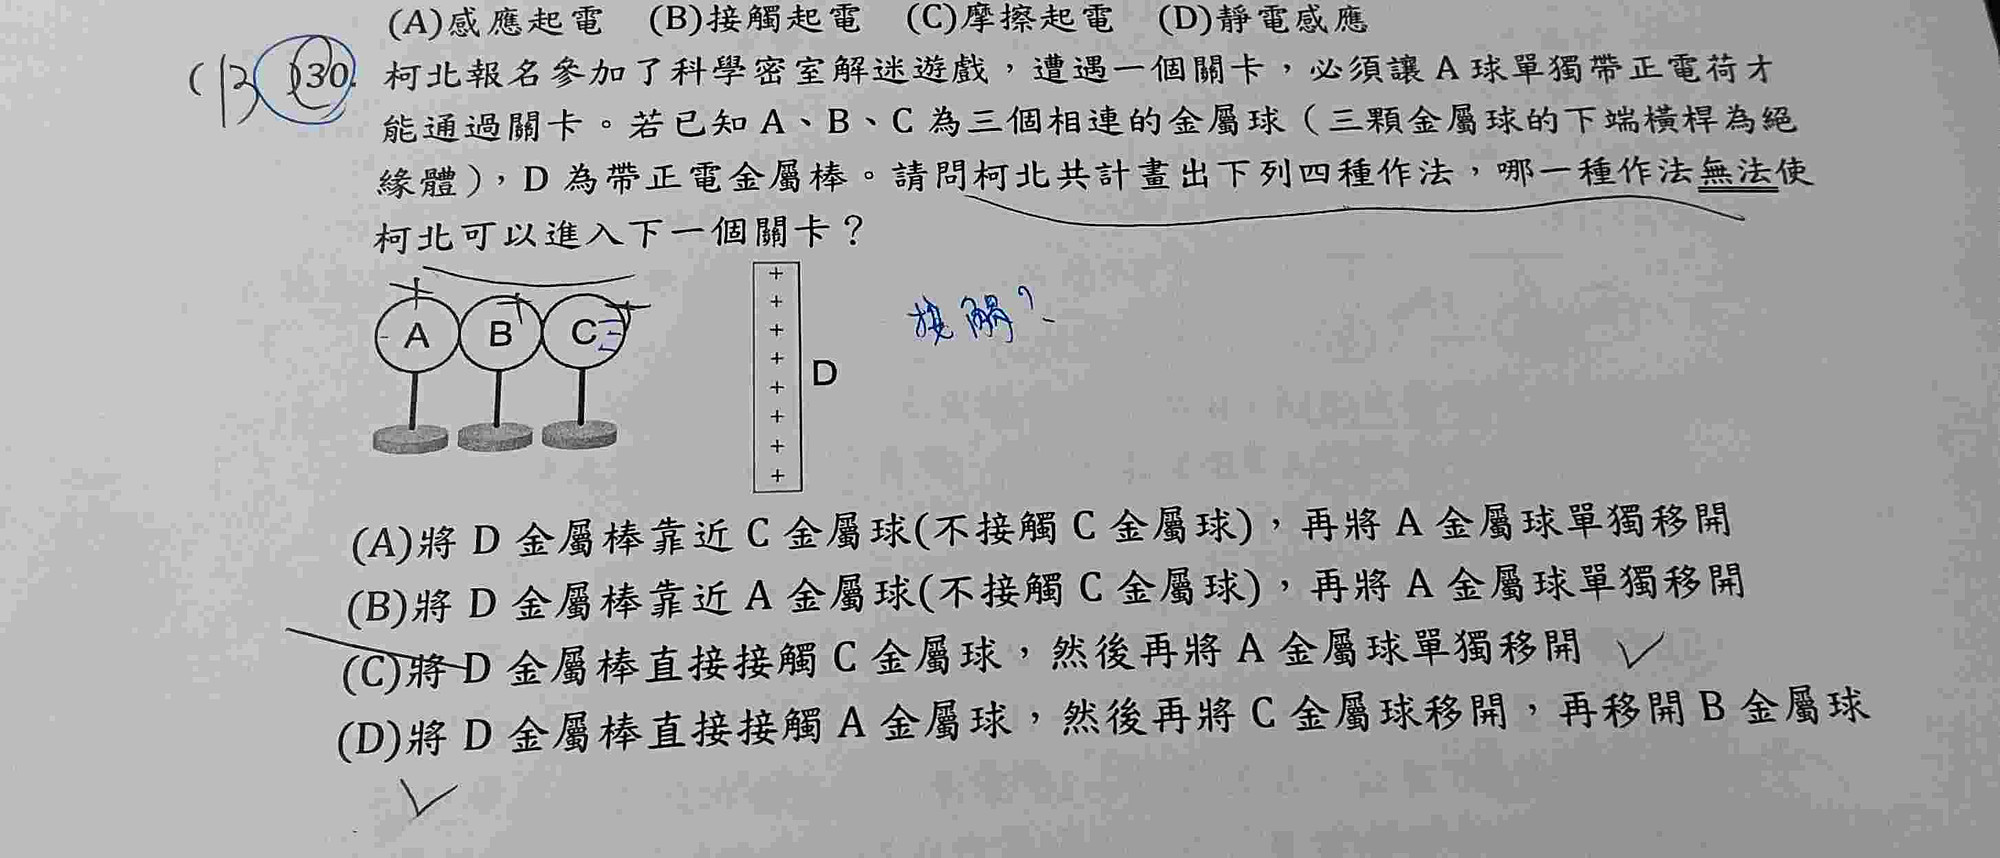 (A)感應起電 (B)接觸起電 (C)摩擦起電 (D)靜電感應
(B)30. 柯北報名參加了科學密室解迷遊戲，遭遇一個關卡，必須讓 A 球單獨帶正電荷才
能通過關卡。若已知 A、B、C 為三個相連的金屬球（三顆金屬球的下端橫桿為絕
緣體），D 為帶正電金屬棒。請問柯北共計畫出下列四種作法，哪一種作法無法使
柯北可以進入下一個關卡？
+ + +
- A B C
+
+
+
+
+
+
+
+
D
接觸？
(A)將 D 金屬棒靠近 C 金屬球(不接觸 C 金屬球)，再將 A 金屬球單獨移開
(B)將 D 金屬棒靠近 A 金屬球(不接觸 C 金屬球)，再將 A 金屬球單獨移開
(C)將 D 金屬棒直接接觸 C 金屬球，然後再將 A 金屬球單獨移開
(D)將 D 金屬棒直接接觸 A 金屬球，然後再將 C 金屬球移開，再移開 B 金屬球